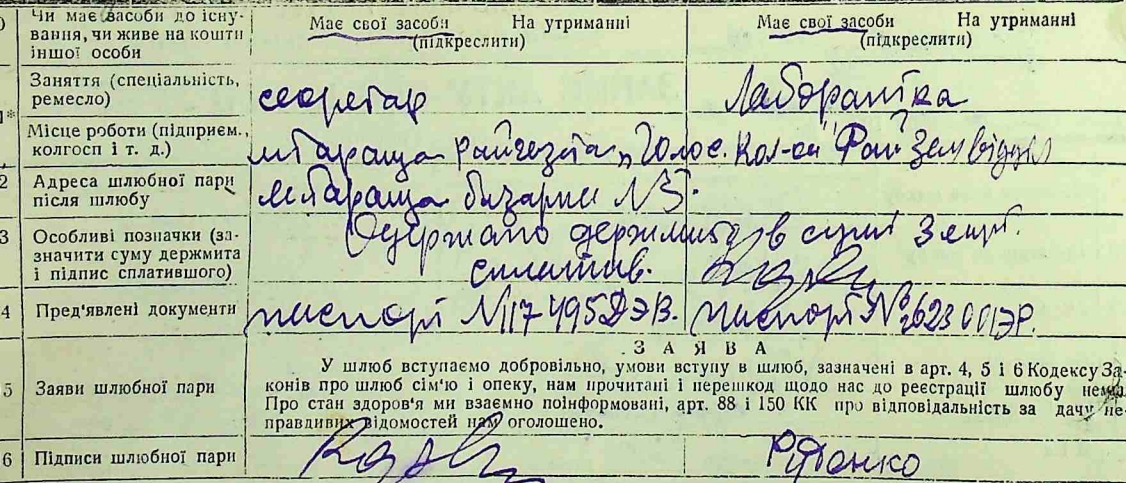 Чи має засоби до існу-
вання, чи живе на кошти
іншої особи
Має свої засоби На утриманні
(підкреслити)
Має свої засоби На утриманні
(підкреслити)
Заняття (спеціальність,
ремесло)
секретар
Лаборантка
1*
Місце роботи (підприєм.,
колгосп і т. д.)
м Тараща райгазета „Голос. Кол-ка"
Рай Земвідділ
2
Адреса шлюбної пари
після шлюбу
м Тараща базарна N 5.
3
Особливі позначки (за-
значити суму держмита
і підпис сплатившого)
Одержано держмито в сумі 3
сплатив.
4
Пред'явлені документи
паспорт N
паспорт №
ЗАЯВА
5
Заяви шлюбної пари
У шлюб вступаємо добровільно, умови вступу в шлюб, зазначені в арт. 4, 5 і 6 Кодексу За-
конів про шлюб сім'ю і опеку, нам прочитані і перешкод щодо нас до реєстрації шлюбу нема.
Про стан здоров'я ми взаємно поінформовані, арт. 88 і 150 КК про відповідальність за дачу не-
правдивих відомостей нам оголошено.
6
Підписи шлюбної пари